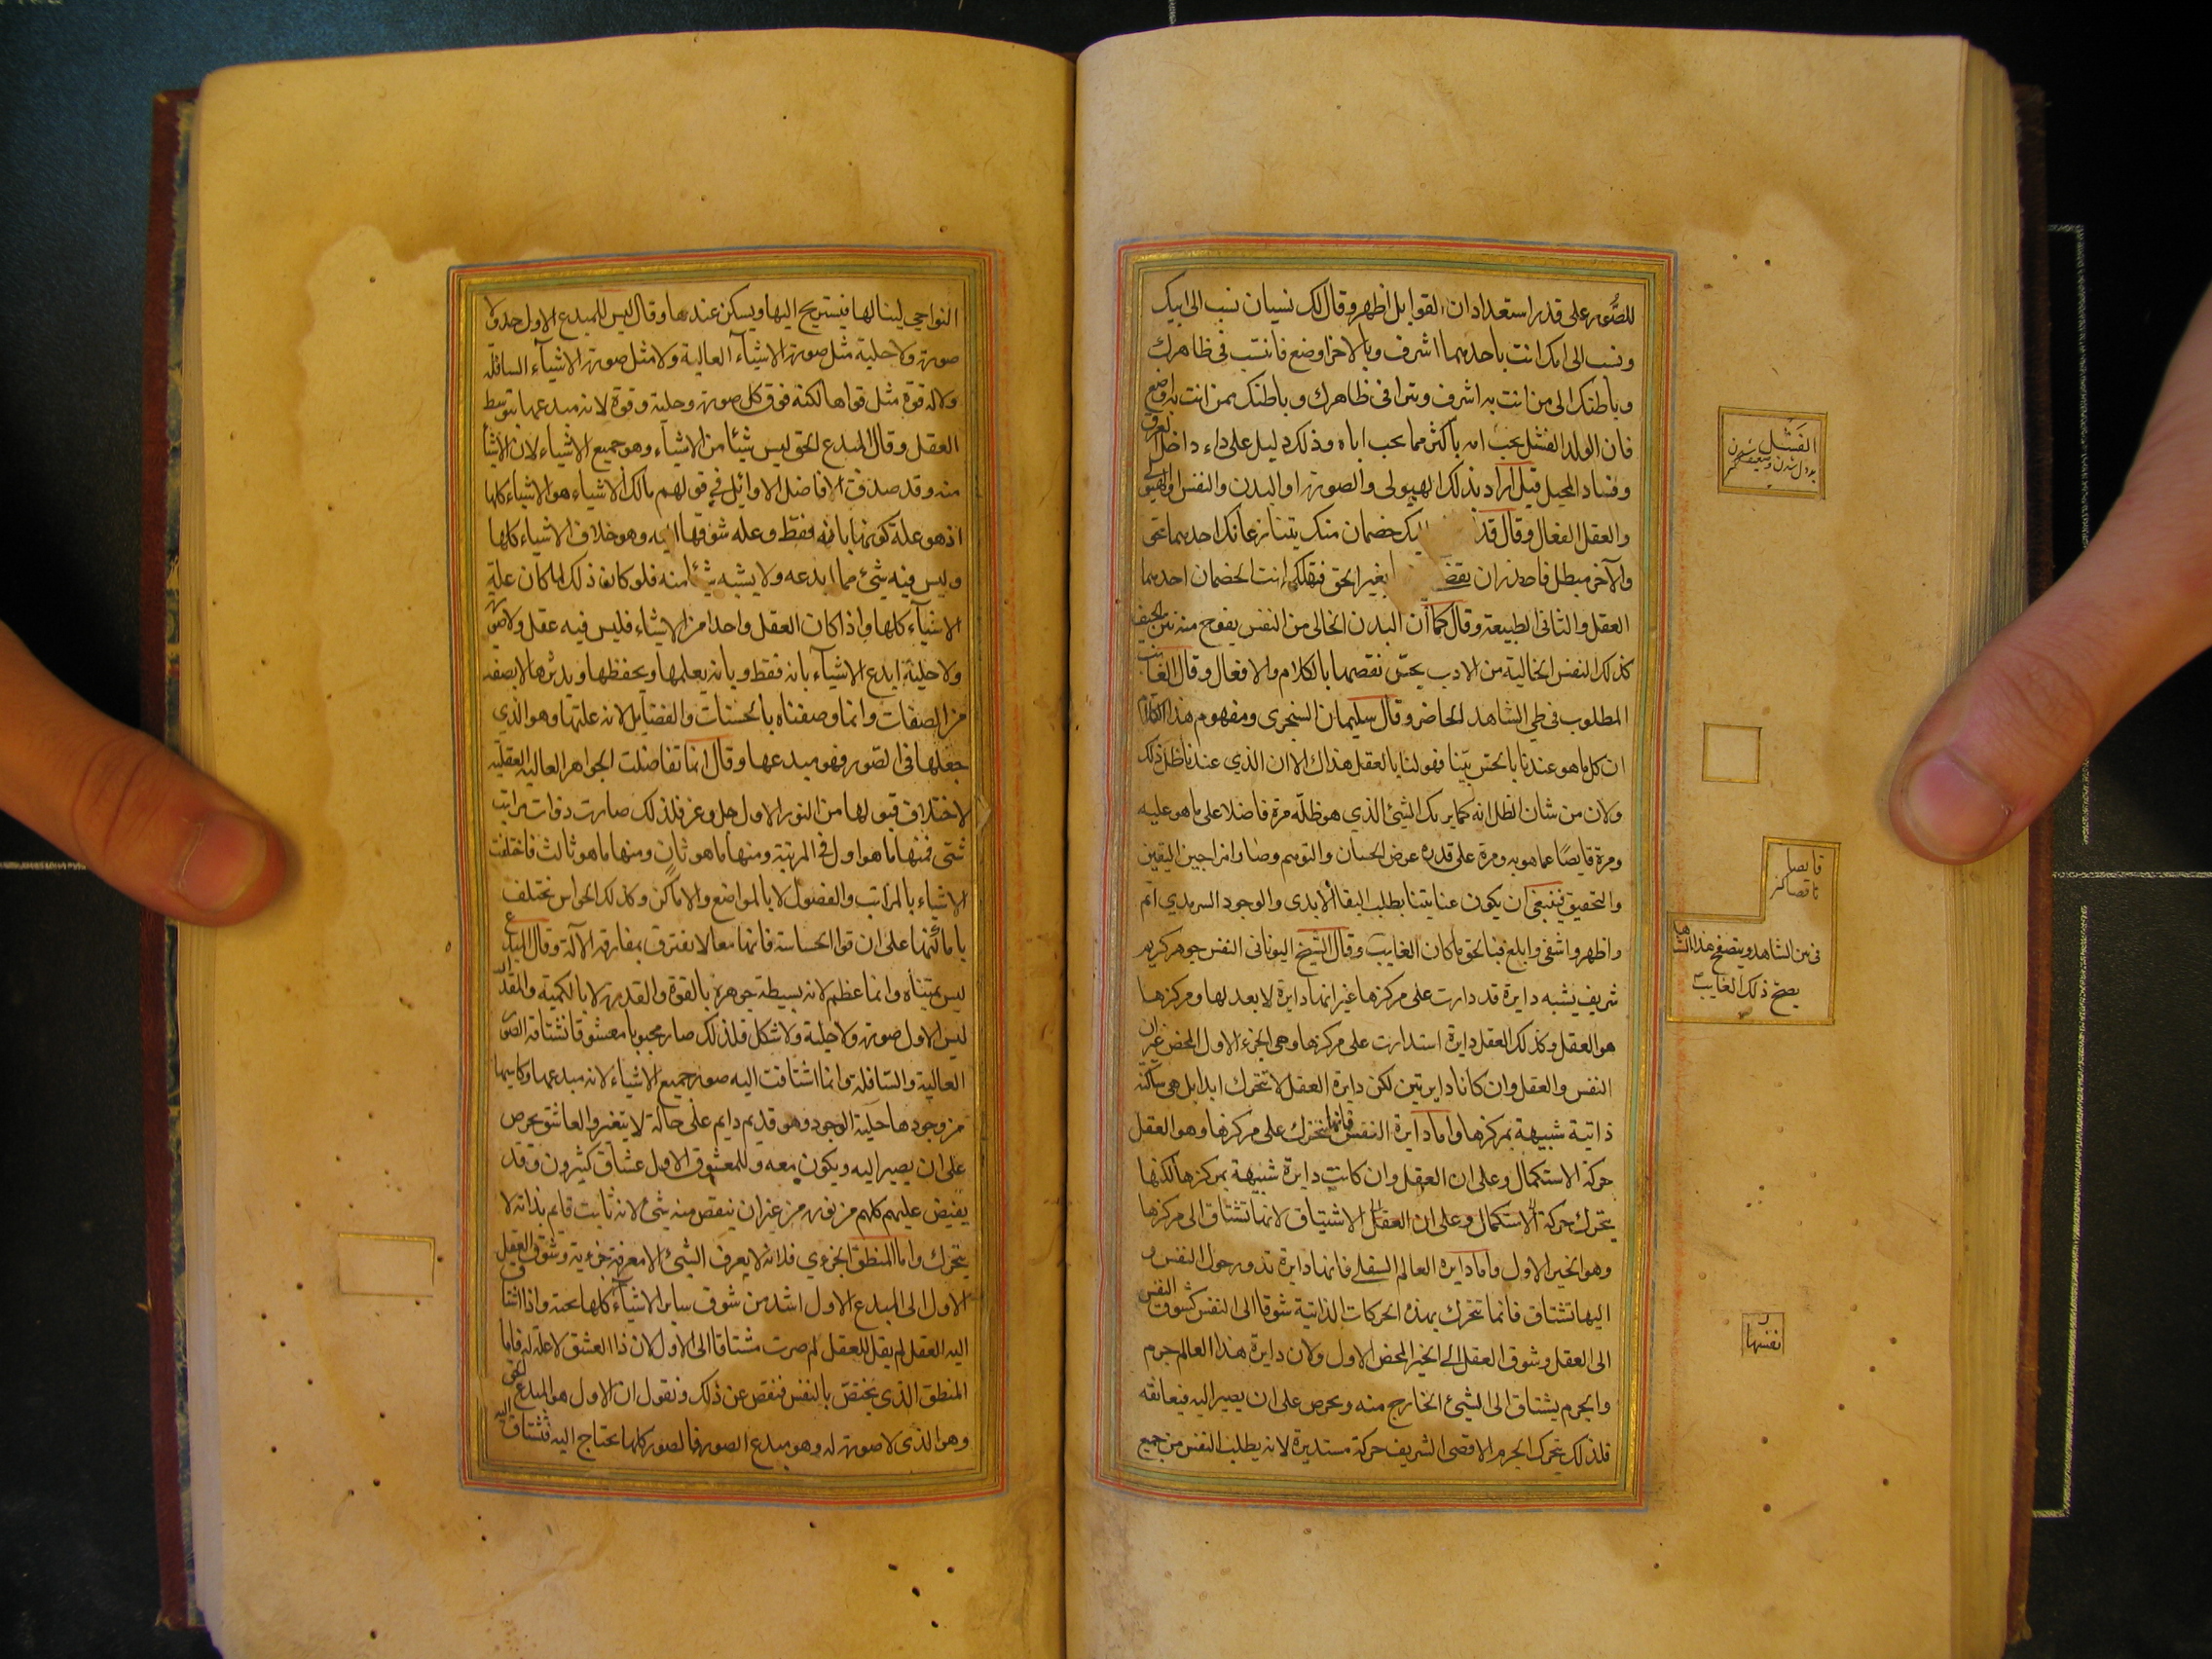 للصور على قدر استعدادان القوابل اظهر وقال لك نسيان نسب الى ابيك
ونسب الى امك انت باحدهما اشرف وبالاخر اوضع فانتسب في ظاهرك
وباطنك الى من انت به اشرف وتبرا في ظاهرك وباطنك ممن انت به اوضع
فان الولد الفشل يحب امه باكثر مما يحب اباه وذلك دليل على داء داخل العرق
وفساد المحيل قيل اراد بذلك الهيولى والصورة او البدن والنفس او الهيولى
والعقل الفعال وقال قد اليك خصمان منك يتنازعانك احدهما محق
والآخر مبطل فاحذر ان تقض بغير الحق فتهلك انت الخصمان احدهما
العقل والثانى الطبيعة وقال كما ان البدن الخالى من النفس يفوح منه نتن الجيفة
كذلك النفس الخالية من الادب يحس نقصها بالكلام والافعال وقال الغائب
المطلوب في طي الشاهد الحاضر وقال سليمان السنجرى ومفهوم هذا الكلام
ان كل ما هو عندنا بالحس بينا فهو لنا بالعقل هذاك الا ان الذي عندنا ظل ذلك
ولان من شان الظل انه كما يريك الشيئ الذي هو ظله مرة فاضلا على ما هو عليه
ومرة قايصا عما هو به ومرة على قدره عرض الحسبان والتوهم وصار مزاحمين اليقين
والتحقيق فينبغي ان يكون عنايتنا بطلب البقا الابدى والوجود السرمدي اتم
واظهر واشفى وابلغ فبالحق ما كان الغايب وقال الشيخ اليونانى النفس جوهر كريم
شريف يشبه دايرة قد دارت على مركزها غير انها دايرة لا بعد لها ومركزها
هو العقل وكذلك العقل دايرة استدارت على مركزها وهى الخير الاول المحض غير ان
النفس والعقل وان كانا دايرتين لكن دايرة العقل لا تتحرك ابدا بل هى ساكنة
ذاتية شبيهة بمركزها واما دايرة النفس فانها تتحرك على مركزها وهو العقل
حركة الاستكمال وعلى ان العقل وان كانت دايرة شبيهة بمركزها لكنها
يتحرك حركة الاستكمال وعلى ان العقل الاشتياق لانها تشتاق الى مركزها
وهو الخير الاول واما دايرة العالم السفلى فانها دايرة تدور حول النفس و
اليها تشتاق فانما تتحرك بهذه الحركات الذاتية شوقا الى النفس كشوق النفس
الى العقل وشوق العقل الى الخير المحض الاول ولان دايرة هذا العالم جرم
والجرم يشتاق الى الشيئ الخارج منه ويحرص على ان يصير اليه فيعانقه
فلذلك يتحرك الجرم الاقصى الشريف حركة مستديرة لانه يطلب النفس من جميع
الفشل
بددل شدن وضعيف
قايصا
ناقصا
في من الشاهد ويتصفح هذا الشاهد
يصح ذلك الغايب
نفسها
النواحي لينالها فيستريح اليها ويسكن عندها وقال ليس للمبدع الاول حد ولا
صورة ولا حلية مثل صورة الاشيآء العالية ولا مثل صورة الاشيآء السافلة
ولا له قوة مثل قواها لكنه فوق كل صورة وحلية وقوة لانه مبدعها بتوسط
العقل وقال المبدع الحق ليس شيئا من الاشيآء وهو جميع الاشياء لان الاشيا
منه وقد صدق الافاضل الاوائل في قولهم مالك الاشياء هو الاشياء كلها
اذ هو علة كونها بانه فقط وعلة شوقها اليه وهو خلاف الاشياء كلها
وليس فيه شئ مما ابدعه ولا يشبه شيئا منه فلو كان ذلك لما كان علة
الاشيآء كلها واذا كان العقل واحدا من الاشياء فليس فيه عقل ولا صورة
ولا حلية ابدع الاشيآء بانه فقط وبانه يعلمها ويحفظها ويدبرها لا بصفة
من الصفات وانما وصفناه بالحسنات والفضايل لانه علتها وهو الذي
جعلها في الصور فهو مبدعها وقال انما تفاضلت الجواهر العالية العقلية
لاختلاف قبولها من النور الاول جل وعز فلذلك صارت ذوات مراتب
شتى فمنها ما هو اول في المرتبة ومنها ما هو ثان ومنها ما هو ثالث فاختلفت
الاشياء بالمراتب والفصول لا بالمواضع والاماكن وكذلك الحواس تختلف
باماكنها على ان قوا الحساسة فانها معا لا يفترق بمفارقة الآلة وقال المبدع
ليس بمتناه وانما عظم لانه بسيطة جوهره بالقوة والقدرة لا بالكمية والمقدار
ليس الاول صورة ولا حلية ولا شكل فلذلك صار محبوبا معشوقا تشتاقه الصور
العالية والسافلة وانما اشتاقت اليه صور جميع الاشياء لانه مبدعها وكاسيها
من وجودها حلية الوجود وهو قديم دايم على حالة لا يتغير والعاشق يحرص
على ان يصير اليه ويكون معه وللمعشوق الاول عشاق كثيرون وقد
يفيض عليهم كلهم من نوره من غير ان ينقص منه شئ لانه ثابت قايم بذاته لا
يتحرك واما المنطق الجزءي فلانه لا يعرف الشئ الا معرفة جزءية وشوق العقل
الاول الى المبدع الاول اشد من شوق ساير الاشيآء كلها تحته واذا اشتاق
اليه العقل لم يقل للعقل لم صرت مشتاقا الى الاول لان ذا العشق لا علة له فاما
المنطق الذي يختص بالنفس فيفحص عن ذلك ونقول ان الاول هو المبدع الحق
وهو الذي لا صورة له وهو مبدع الصور فالصور كلها يحتاج اليه فتشتاق اليه